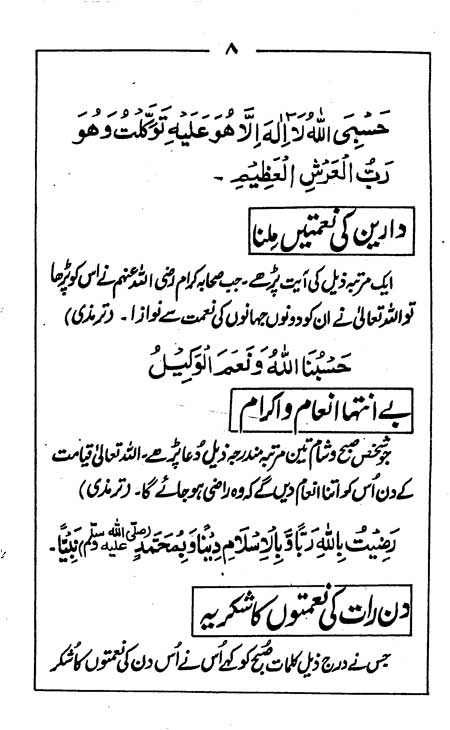 ۸
حَسْبِیَ اللّٰهُ لَآ اِلٰهَ اِلَّا هُوَ عَلَیْهِ تَوَکَّلْتُ وَهُوَ
رَبُّ الْعَرْشِ الْعَظِیْمِ ۔
دارین کی نعمتیں مِلنا
ایک مرتبہ ذیل کی آیت پڑھے۔ جب صحابہ کرام رضی اللہ عنہم نے اس کو پڑھا
تو اللہ تعالیٰ نے ان کو دونوں جہانوں کی نعمت سے نوازا ۔ (ترمذی)
حَسْبُنَا اللّٰهُ وَنَعَمَ الْوَکِیْلُ
بے انتہا انعام و اکرام
جو شخص صبح و شام تین مرتبہ مندرجہ ذیل دُعا پڑھے۔ اللہ تعالیٰ قیامت
کے دن اُس کو اتنا انعام دیں گے کہ وہ راضی ہو جائے گا۔ (ترمذی)
رَضِیْتُ بِاللّٰهِ رَبًّا وَّ بِالْاِسْلَامِ دِیْنًا وَ بِمُحَمَّدٍ (صلی اللہ علیہ وسلم) نَبِیًّا۔
دن رات کی نعمتوں کا شکریہ
جس نے درج ذیل کلمات صُبح کو کہے اُس نے اُس دن کی نعمتوں کا شُکر